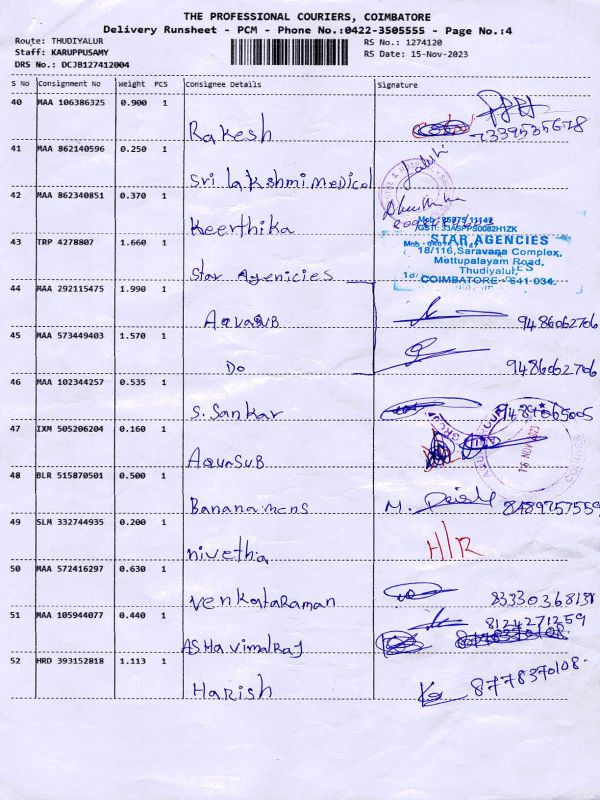 THE PROFESSIONAL COURIERS, COIMBATORE
Delivery Runsheet - PCM - Phone No.:0422-3505555 - Page No.:4
Route: THUDIYALUR
Staff: KARUPPUSAMY
DRS No.: DCJB127412004
RS No.: 1274120
RS Date: 15-Nov-2023
S No Consignment No Weight PCS Consignee Details Signature
40 MAA 106386325 0.900 1
Rakesh 7339535678
41 MAA 862140596 0.250 1
Sri lakshmi medical
42 MAA 862340851 0.370 1
Keerthika
43 TRP 4278807 1.660 1
STAR AGENCIES
18/116,Saravana Complex,
Mettupalayam Road,
Thudiyalur,
COIMBATORE - 641 034.
Star Agenicies
44 MAA 292115475 1.990 1
AQUASUB 9486062706
45 MAA 573449403 1.570 1
Do 9486062706
46 MAA 102344257 0.535 1
S. Sankar 9487065005
47 IXM 505206204 0.160 1
AQUASUB
16 NOV 2023
48 BLR 515870501 0.500 1
Banana mens 8489757559
49 SLM 332744935 0.200 1
nivetha H/R
50 MAA 572416297 0.630 1
Venkataraman 8333036813
51 MAA 105944077 0.440 1
8124271259
ASHA vimalRaj
52 HRD 393152818 1.113 1
Harish 8778370108